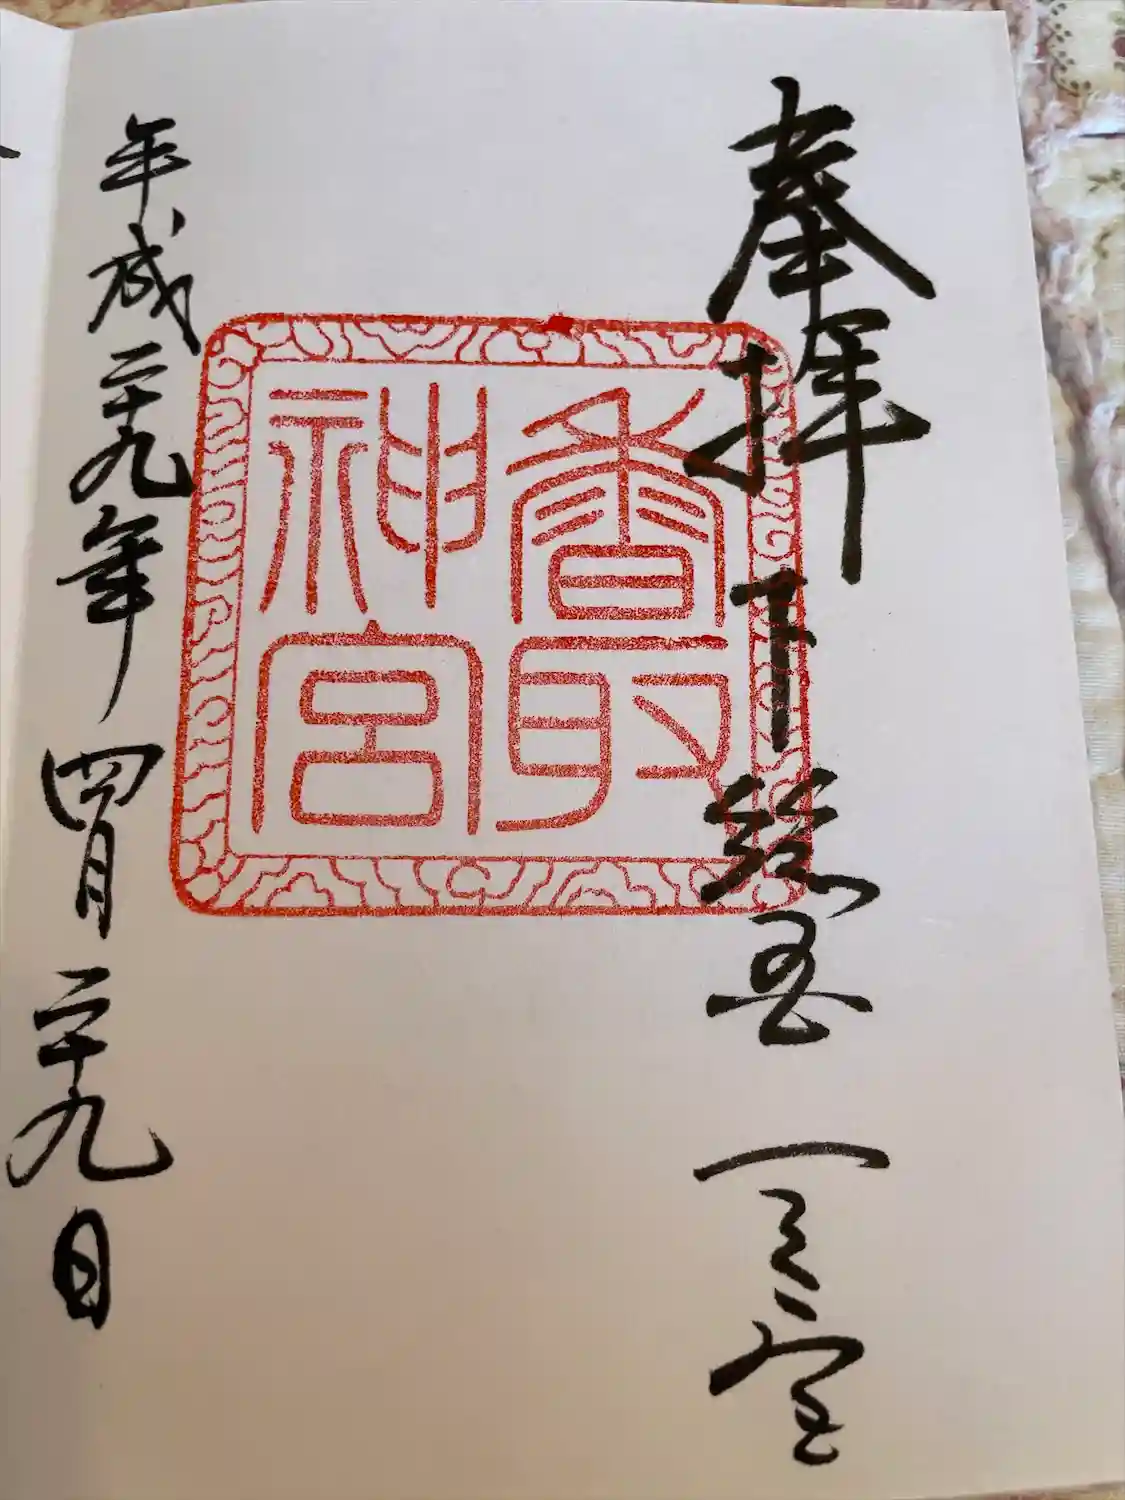 奉拝 下総国一之宮
香取
神宮
平成二十九年四月二十九日